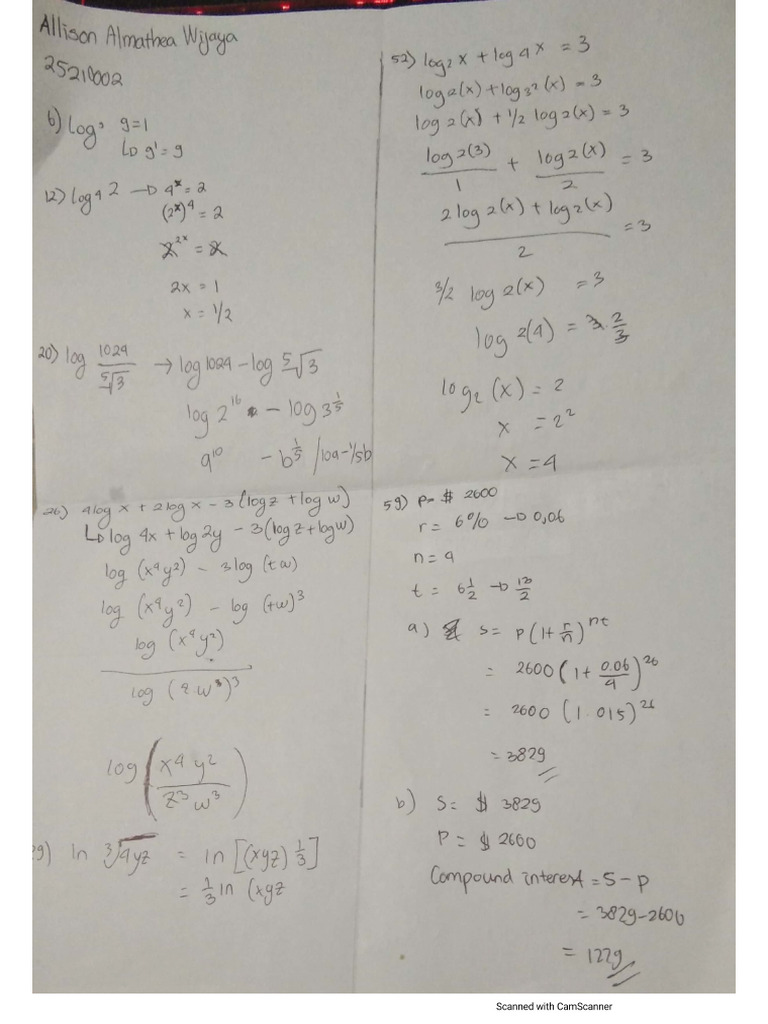 Allison Almathea Wijaya
25210002
6) log³ 9=1
↳ 9¹ = 9
12) log4 2 → 4ˣ = 2
(2ˣ)⁴ = 2
2²ˣ = 2
2x = 1
x = 1/2
20) log 1024/⁵√3 → log 1024 - log ⁵√3
log 2¹⁶ - log 3^1/5
a¹⁰ - b^1/5 / 10a - 1/5b
26) 4log x + 2log x - 3(log z + log w)
↳ log 4x + log 2y - 3(log z + log w)
log (x⁴y²) - 3log (tw)
log (x⁴y²) - log (tw)³
log (x⁴y²)
log (z·w³)³
log (x⁴ y² / z³ w³)
29) ln ³√4yz = ln [(xyz) 1/3]
= 1/3 ln (xyz
52) log₂ x + log 4 x = 3
log 2(x) + log 3² (x) = 3
log 2(x) + 1/2 log 2(x) = 3
log 2(3)/1 + log 2(x)/2 = 3
2 log 2(x) + log 2(x) / 2 = 3
3/2 log 2(x) = 3
log 2(4) = 3 · 2/3
log₂ (x) = 2
x = 2²
x = 4
59) P = $ 2600
r = 6% → 0,06
n = 4
t = 6 1/2 → 13/2
a) S = P(1 + r/n)ⁿᵗ
= 2600 (1 + 0.06/4)²⁶
= 2600 (1.015)²⁶
= 3829
b) S = $ 3829
P = $ 2600
Compound interest = S - P
= 3829 - 2600
= 1229
Scanned with CamScanner